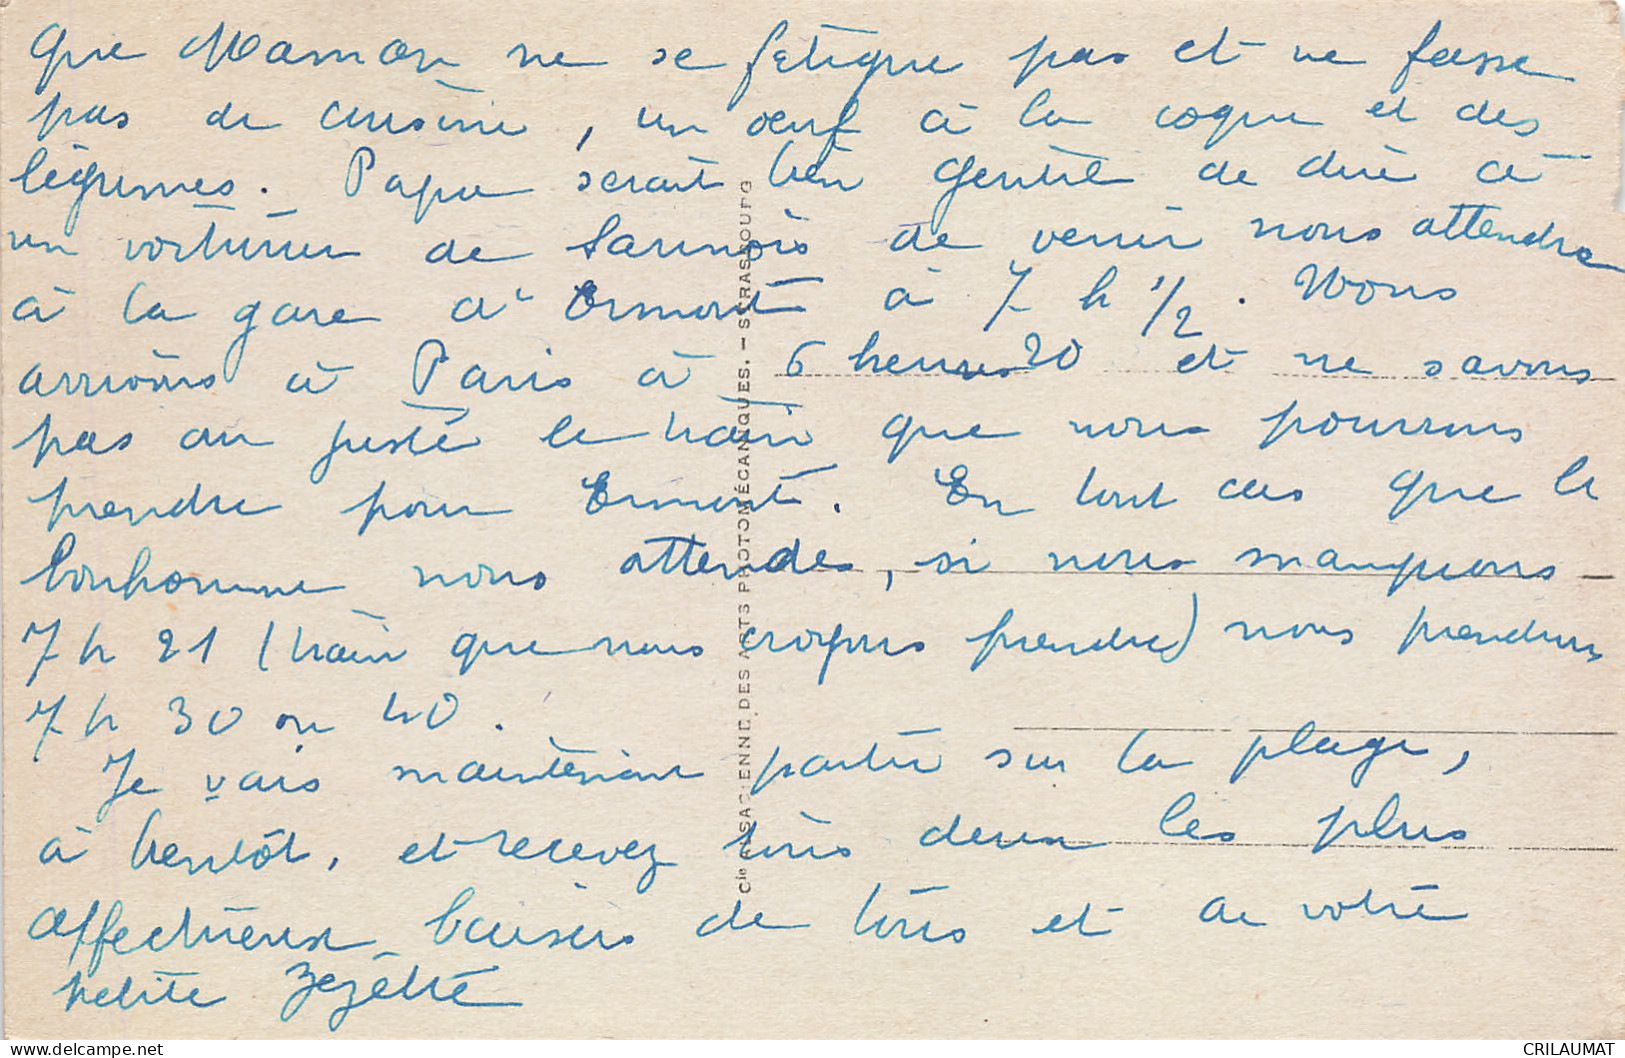 Que Maman ne se fatigue pas et ne fasse
pas de cuisine, un oeuf à la coque et des
légumes. Papa serait bien gentil de dire à
un voiturier de Sannois de venir nous attendre
à la gare d'Ermont à 7 h 1/2. Nous
arrivons à Paris à 6 heures 20 et ne savons
pas au juste le train que nous pourrons
prendre pour Ermont. En tout cas que le
bonhomme nous attende, si nous manquions
7 h 21 (train que nous croyons prendre) nous prendrons
7 h 30 ou 40.
Je vais maintenant partir sur la plage,
à bientôt, et recevez tous deux les plus
affectueux baisers de tous et de votre
petite Zézette
Cie ALSACIENNE DES ARTS PHOTOMÉCANIQUES. — STRASBOURG
delcampe.net
CRILAUMAT